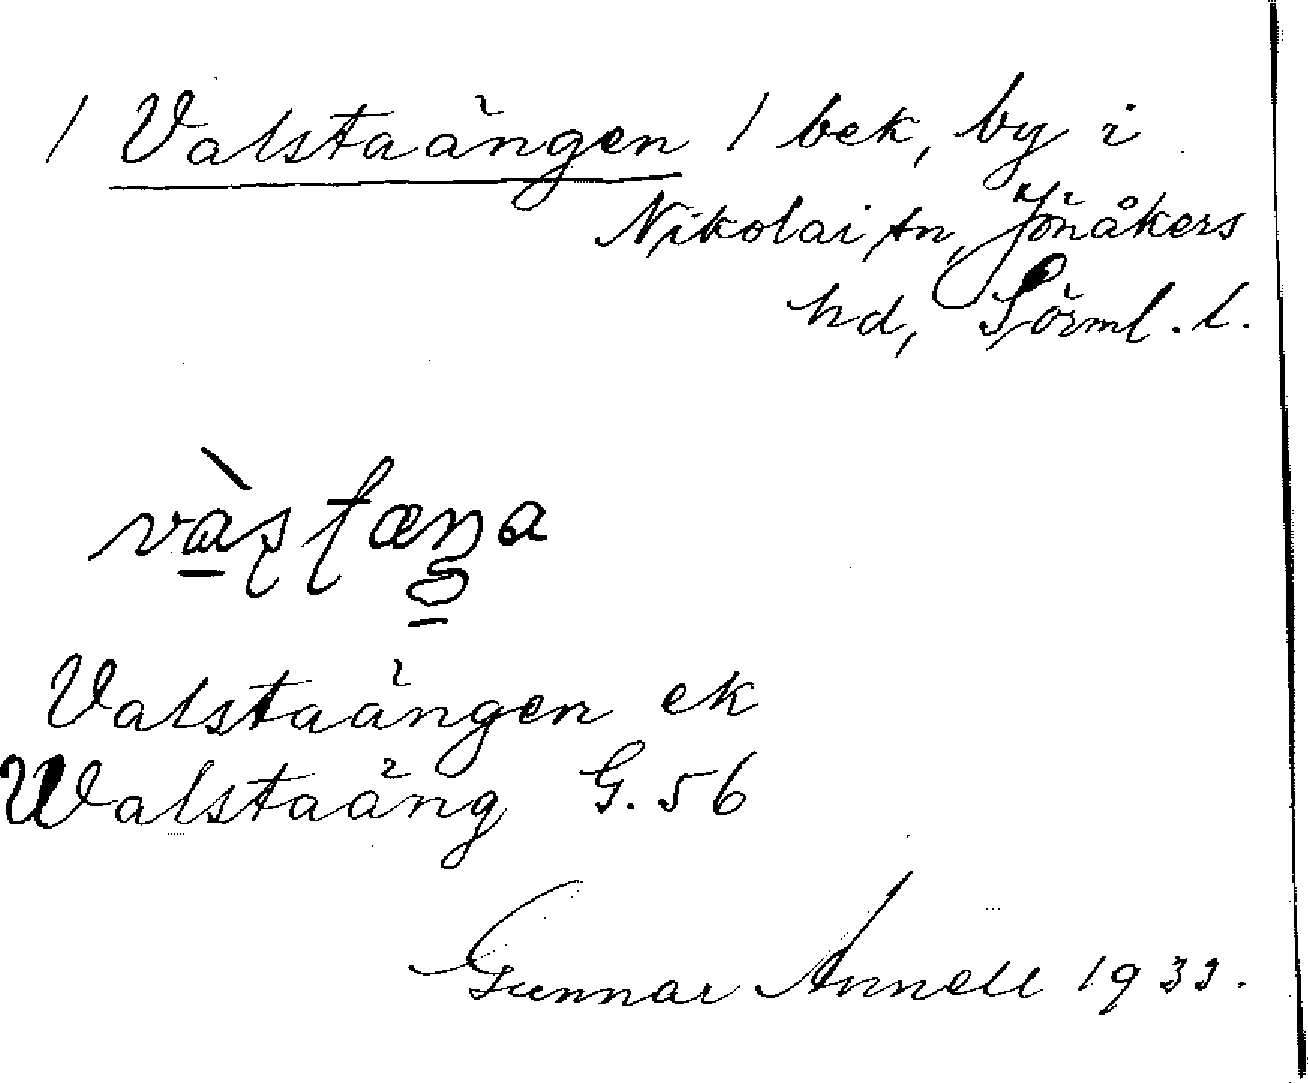 / Valstaängen / bek, by i
Nikolai sn, Jönåkers
hd, Sörml. l.
Valstaängen ek
Walstaäng G. 56
Gunnar Annell 1933.